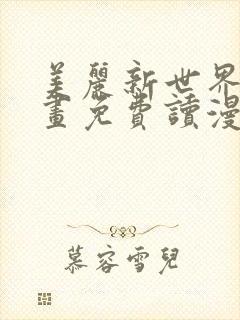 美麗新世界
畫免費讀漫
慕容雪兒